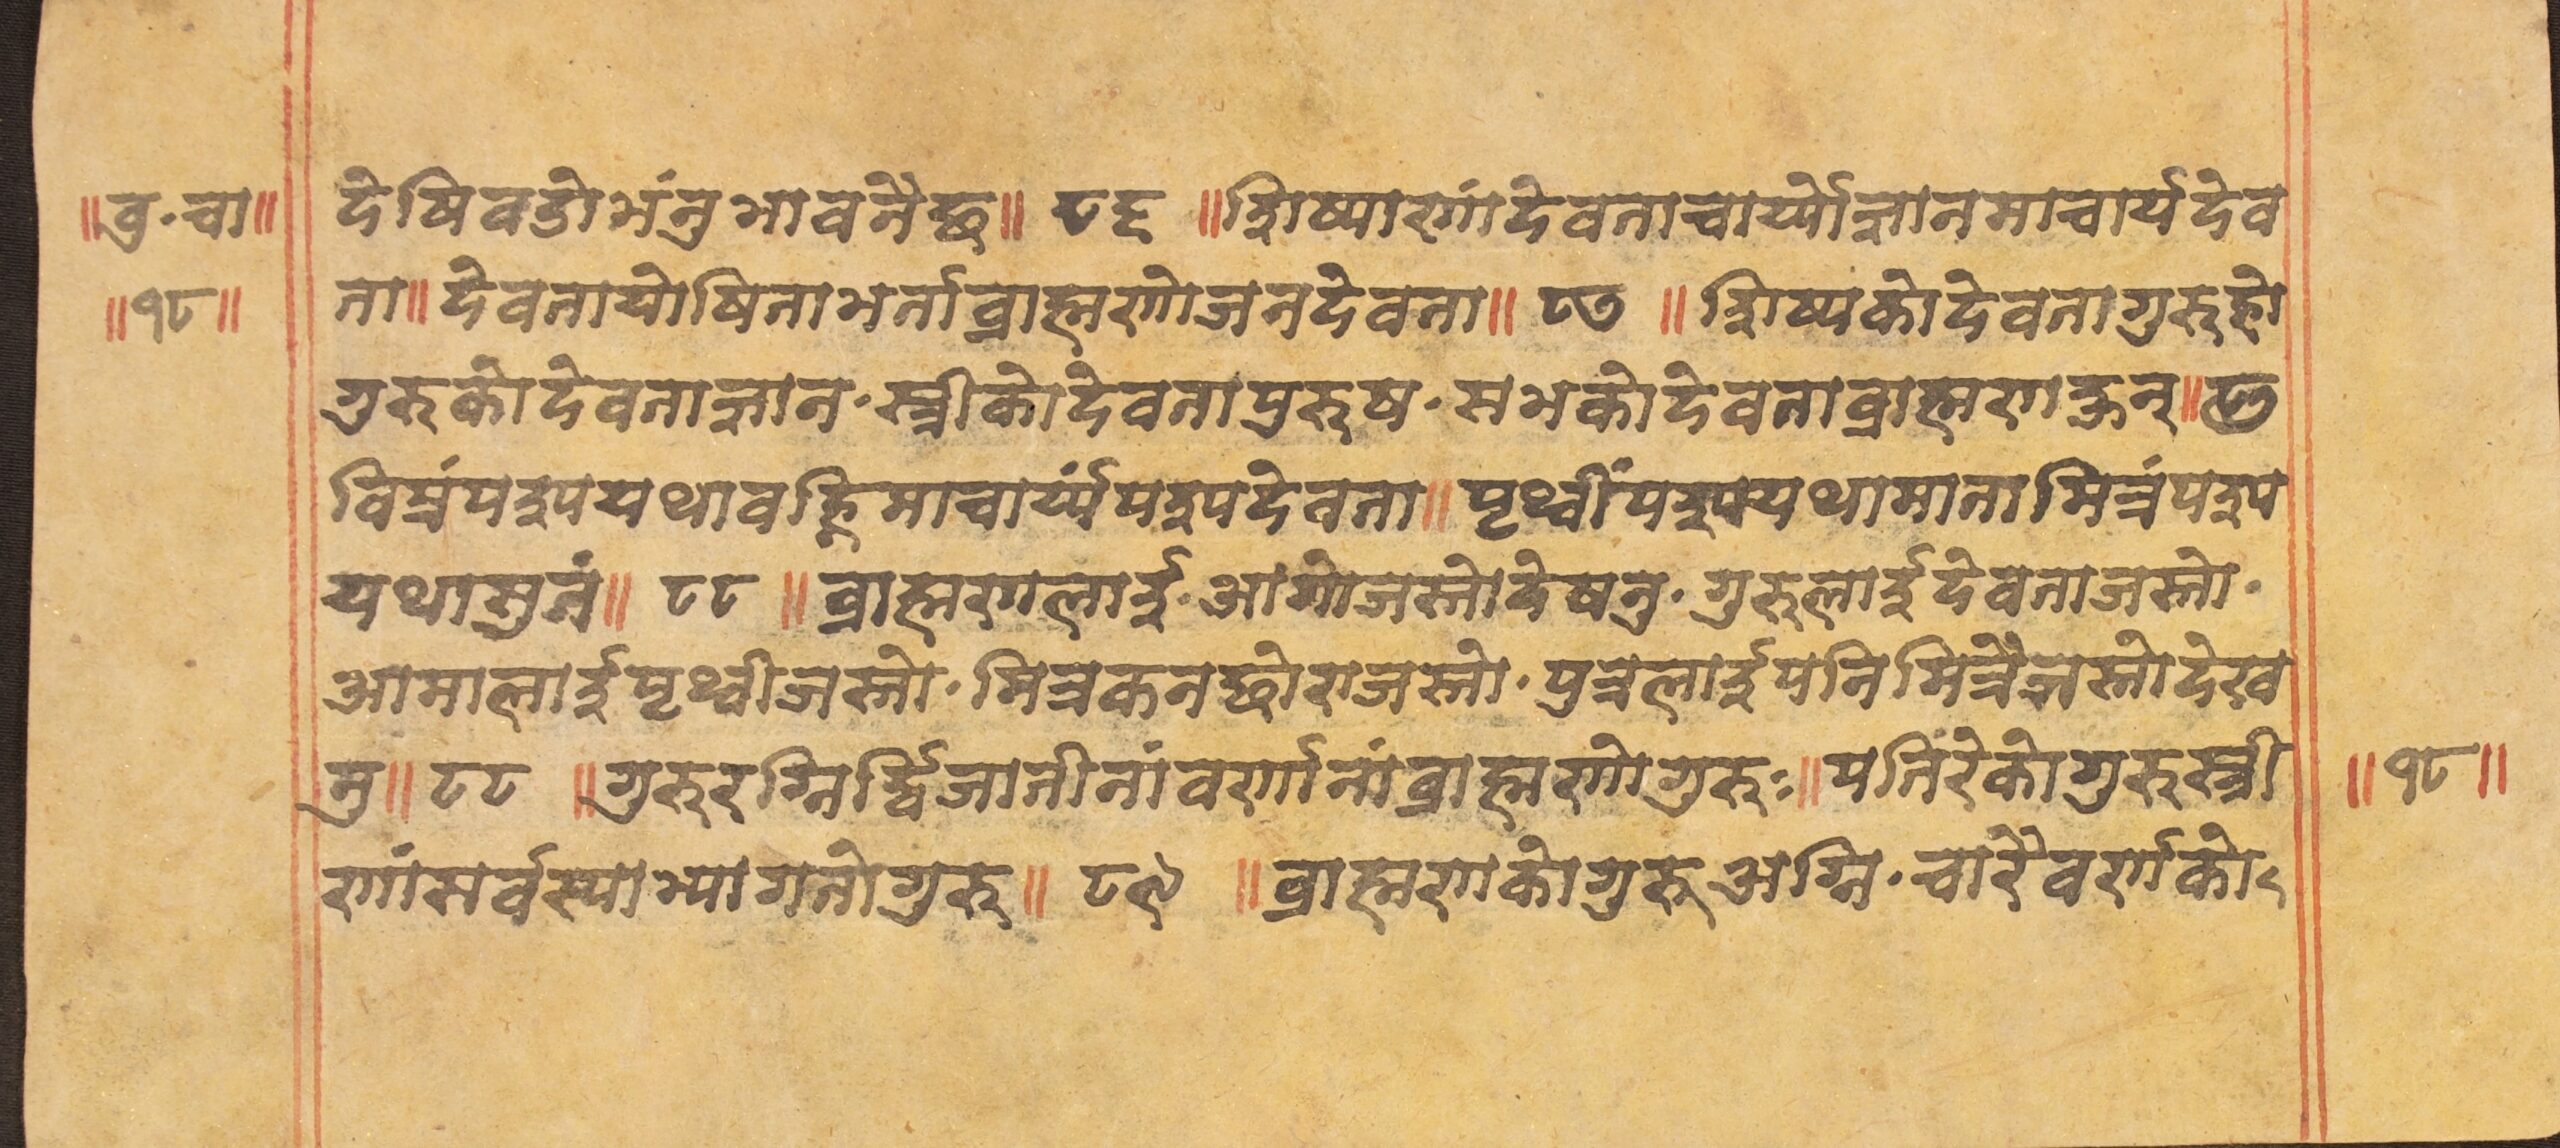 ॥वु॰चा॥
॥१८॥
देषिवडोभंनुभावनैछ॥ ८६ ॥शिष्याणांदेवताचार्य्योज्ञानमाचार्यदेव
ता॥देवतायोषिताभर्ताब्राह्मणोजनदेवता॥ ८७ ॥शिष्यकोदेवतागुरुहो
गुरुकोदेवताज्ञान॰स्त्रीकोदेवतापुरुष॰सभकोदेवताब्राह्मणहुन्॥८७
विप्रंपश्पयथावह्निमाचार्य्यंपश्पदेवता॥पृथ्वींपश्पयथामातामित्रंपश्प
यथासुतं॥ ८८ ॥ब्राह्मणलाई॰आगोजस्तोदेषनु॰गुरुलाईदेवताजस्तो॰
आमालाईपृथ्वीजस्तो॰मित्रकनछोराजस्तो॰पुत्रलाईपनिमित्रैजस्तोदेख
नु॥ ८८ ॥गुरुरग्निर्द्विजातीनांवर्णानांब्राह्मणोगुरुः॥पतिरेकोगुरुस्त्री
णांसर्वस्याभ्यागतोगुरु॥ ८९ ॥ब्राह्मणकोगुरुअग्नि॰चारैवर्णको
॥१८॥